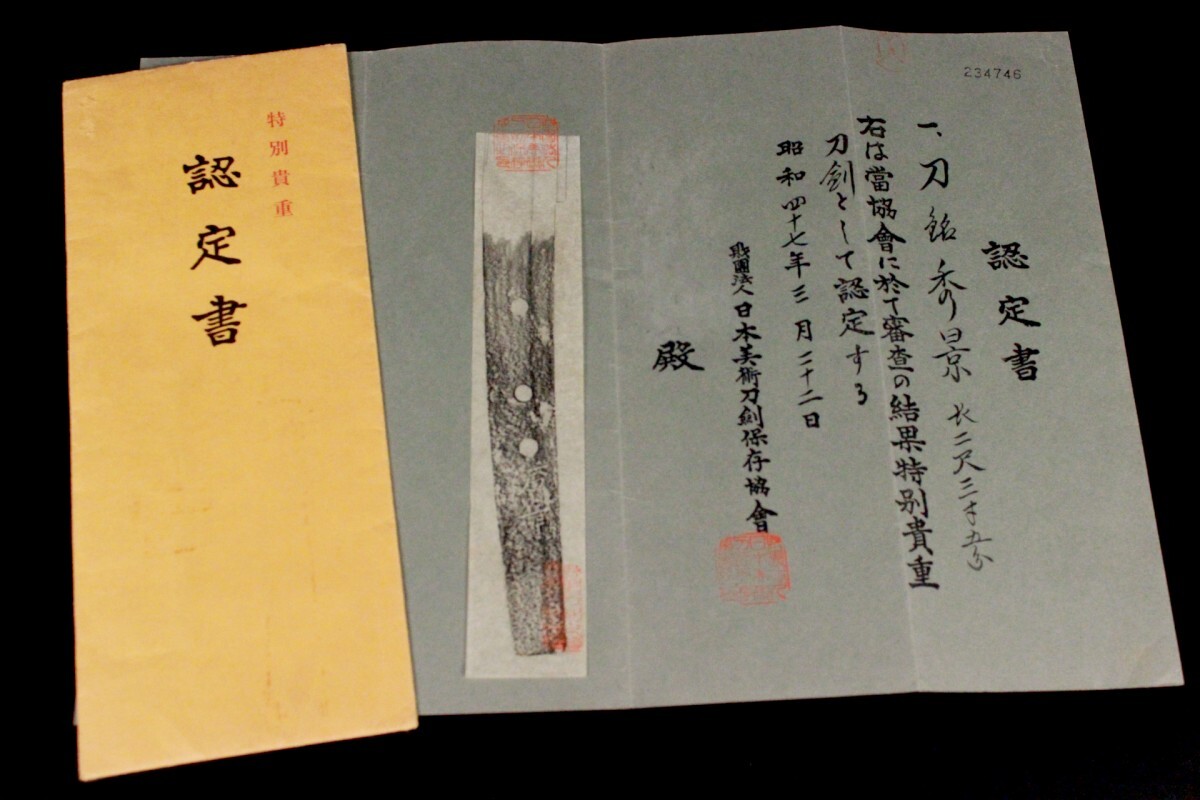 特別貴重
認定書
234746
認定書
一、刀 銘 秀景 長二尺三寸五分
右は當協會に於て審査の結果特別貴重
刀劍として認定する
昭和四十七年三月二十二日
財團法人日本美術刀劍保存協會
殿